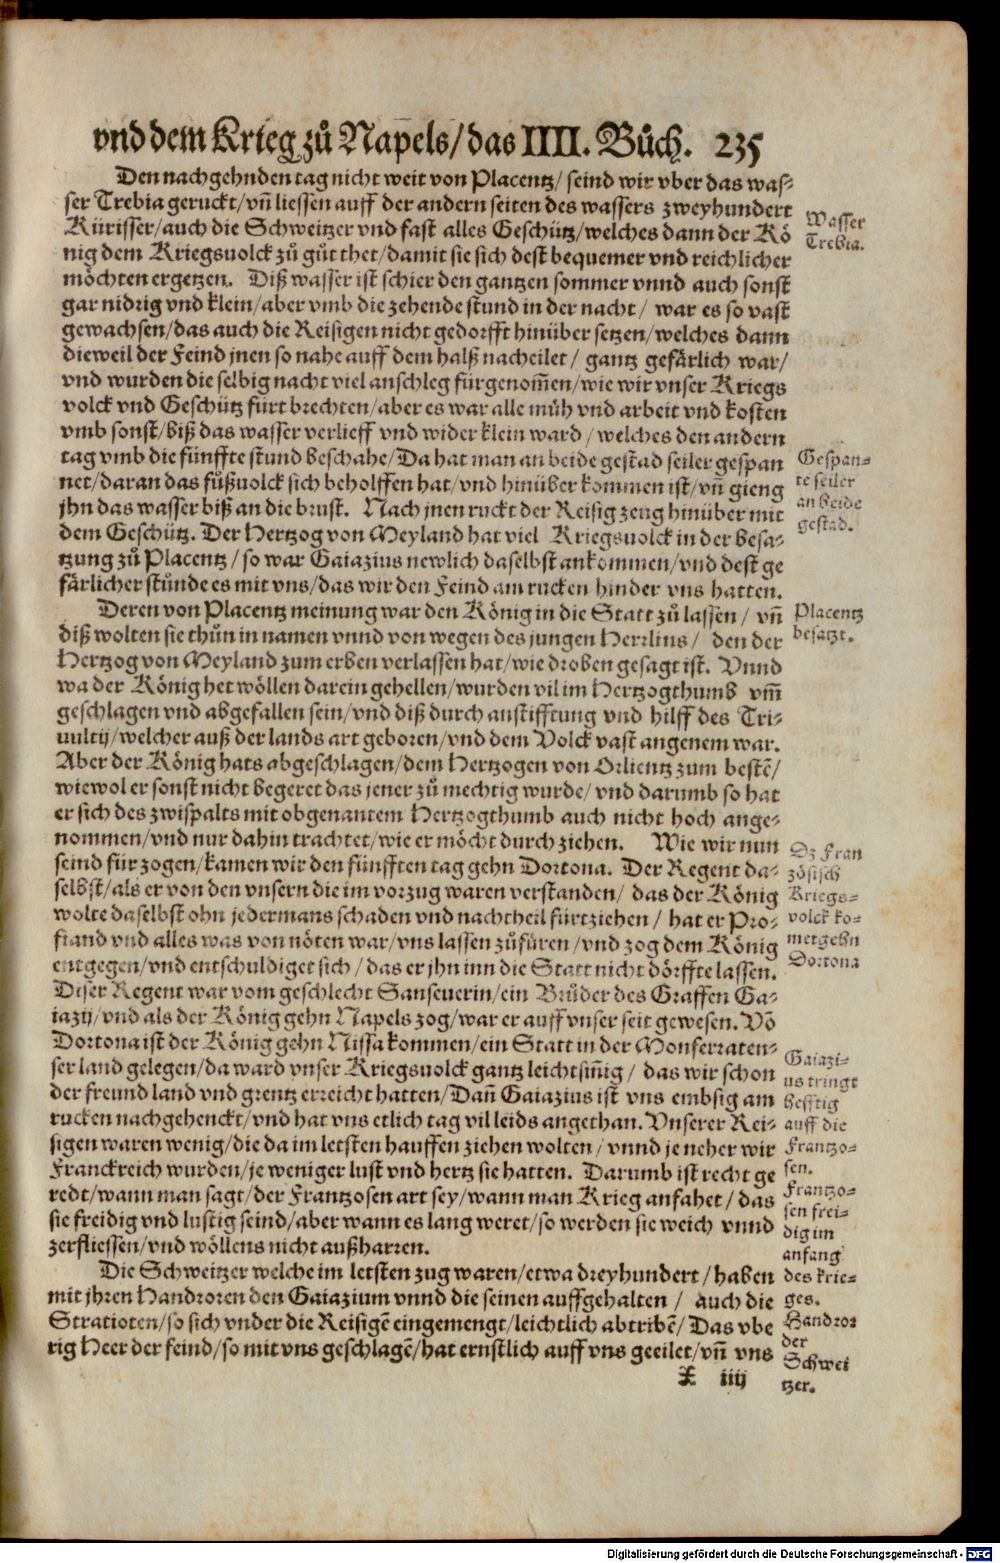 vnd dem Krieg zuͦ Napels/das IIII. Buͦch. 235
Den nachgehnden tag nicht weit von Placentz/ seind wir vber das was-
ser Trebia geruckt/vñ liessen auff der andern seiten des wassers zweyhundert
Kürisser/auch die Schweitzer vnd fast alles Geschütz/welches dann der Kö
nig dem Kriegsuolck zuͦ guͦt thet/damit sie sich dest bequemer vnd reichlicher
möchten ergetzen. Diß wasser ist schier den gantzen sommer vnnd auch sonst
gar nidrig vnd klein/aber vmb die zehende stund in der nacht/ war es so vast
gewachsen/das auch die Reisigen nicht gedorfft hinüber setzen/welches dann
dieweil der Feind jnen so nahe auff dem halß nacheilet/ gantz gefärlich war/
vnd wurden die selbig nacht viel anschleg fürgenom̃en/wie wir vnser Kriegs
volck vnd Geschütz fürt brechten/aber es war alle müh vnd arbeit vnd kosten
vmb sonst/biß das wasser verlieff vnd wider klein ward/welches den andern
tag vmb die fünffte stund beschahe/Da hat man an beide gestad seiler gespan
net/daran das fuͦßuolck sich beholffen hat/vnd hinüber kommen ist/vñ gieng
jhn das wasser biß an die brust. Nach jnen ruckt der Reisig zeug hinüber mit
dem Geschütz. Der Hertzog von Meyland hat viel Kriegsuolck in der besa-
tzung zuͦ Placentz/so war Gaiazius newlich daselbst ankommen/vnd dest ge
färlicher stünde es mit vns/das wir den Feind am rucken hinder vns hatten.
Deren von Placentz meinung war den König in die Statt zuͦ lassen/ vñ
diß wolten sie thuͦn in namen vnnd von wegen des jungen Herrlins/ den der
Hertzog von Meyland zum erben verlassen hat/wie droben gesagt ist. Vnnd
wa der König het wöllen darein gehellen/wurden vil im Hertzogthumb vm̃
geschlagen vnd abgefallen sein/vnd diß durch anstifftung vnd hilff des Tri-
uultij/welcher auß der lands art geboren/vnd dem Volck vast angenem war.
Aber der König hats abgeschlagen/dem Hertzogen von Orlientz zum bestẽ/
wiewol er sonst nicht begeret das jener zuͦ mechtig wurde/vnd darumb so hat
er sich des zwispalts mit obgenantem Hertzogthumb auch nicht hoch ange-
nommen/vnd nur dahin trachtet/wie er möcht durch ziehen. Wie wir nun
seind für zogen/kamen wir den fünfften tag gehn Dortona. Der Regent da-
selbst/als er von den vnsern die im vorzug waren verstanden/ das der König
wolte daselbst ohn jedermans schaden vnd nachtheil fürtziehen/ hat er Pro-
fiand vnd alles was von nöten war/vns lassen zuͦfüren/vnd zog dem König
entgegen/vnd entschuldiget sich/das er jhn inn die Statt nicht dörffte lassen.
Diser Regent war vom geschlecht Sanseuerin/ein Bruͦder des Graffen Ga-
iazij/vnd als der König gehn Napels zog/war er auff vnser seit gewesen. Võ
Dortona ist der König gehn Nissa kommen/ein Statt in der Monferraten-
ser land gelegen/da ward vnser Kriegsuolck gantz leichtsiñig/ das wir schon
der freund land vnd grentz erreicht hatten/Dañ Gaiazius ist vns embsig am
rucken nachgehenckt/vnd hat vns etlich tag vil leids angethan. Vnserer Rei-
sigen waren wenig/die da im letsten hauffen ziehen wolten/ vnnd je neher wir
Franckreich wurden/je weniger lust vnd hertz sie hatten. Darumb ist recht ge
redt/wann man sagt/der Frantzosen art sey/wann man Krieg anfahet/das
sie freidig vnd lustig seind/aber wann es lang weret/so werden sie weich vnnd
zerfliessen/vnd wöllens nicht außharren.
Die Schweitzer welche im letsten zug waren/etwa dreyhundert/haben
mit jhren Handroren den Gaiazium vnnd die seinen auffgehalten/ auch die
Stratioten/so sich vnder die Reisigẽ eingemengt/leichtlich abtribẽ/Das vbe
rig Heer der feind/so mit vns geschlagẽ/hat ernstlich auff vns geeilet/vñ vns
X iiij
Wasser
Trebia.
Gespan-
te seiler
an beide
gestad.
Placentz
besatzt.
Dz Fran
zösisch
Kriegs-
volck ko-
met gehn
Dortona
Gaiazi-
us tringt
hefftig
auff die
Frantzo-
sen.
Frantzo-
sen frei-
dig im
anfang
des krie-
ges.
Handror
der
Schwei
tzer.
Digitalisierung gefördert durch die Deutsche Forschungsgemeinschaft - DFG